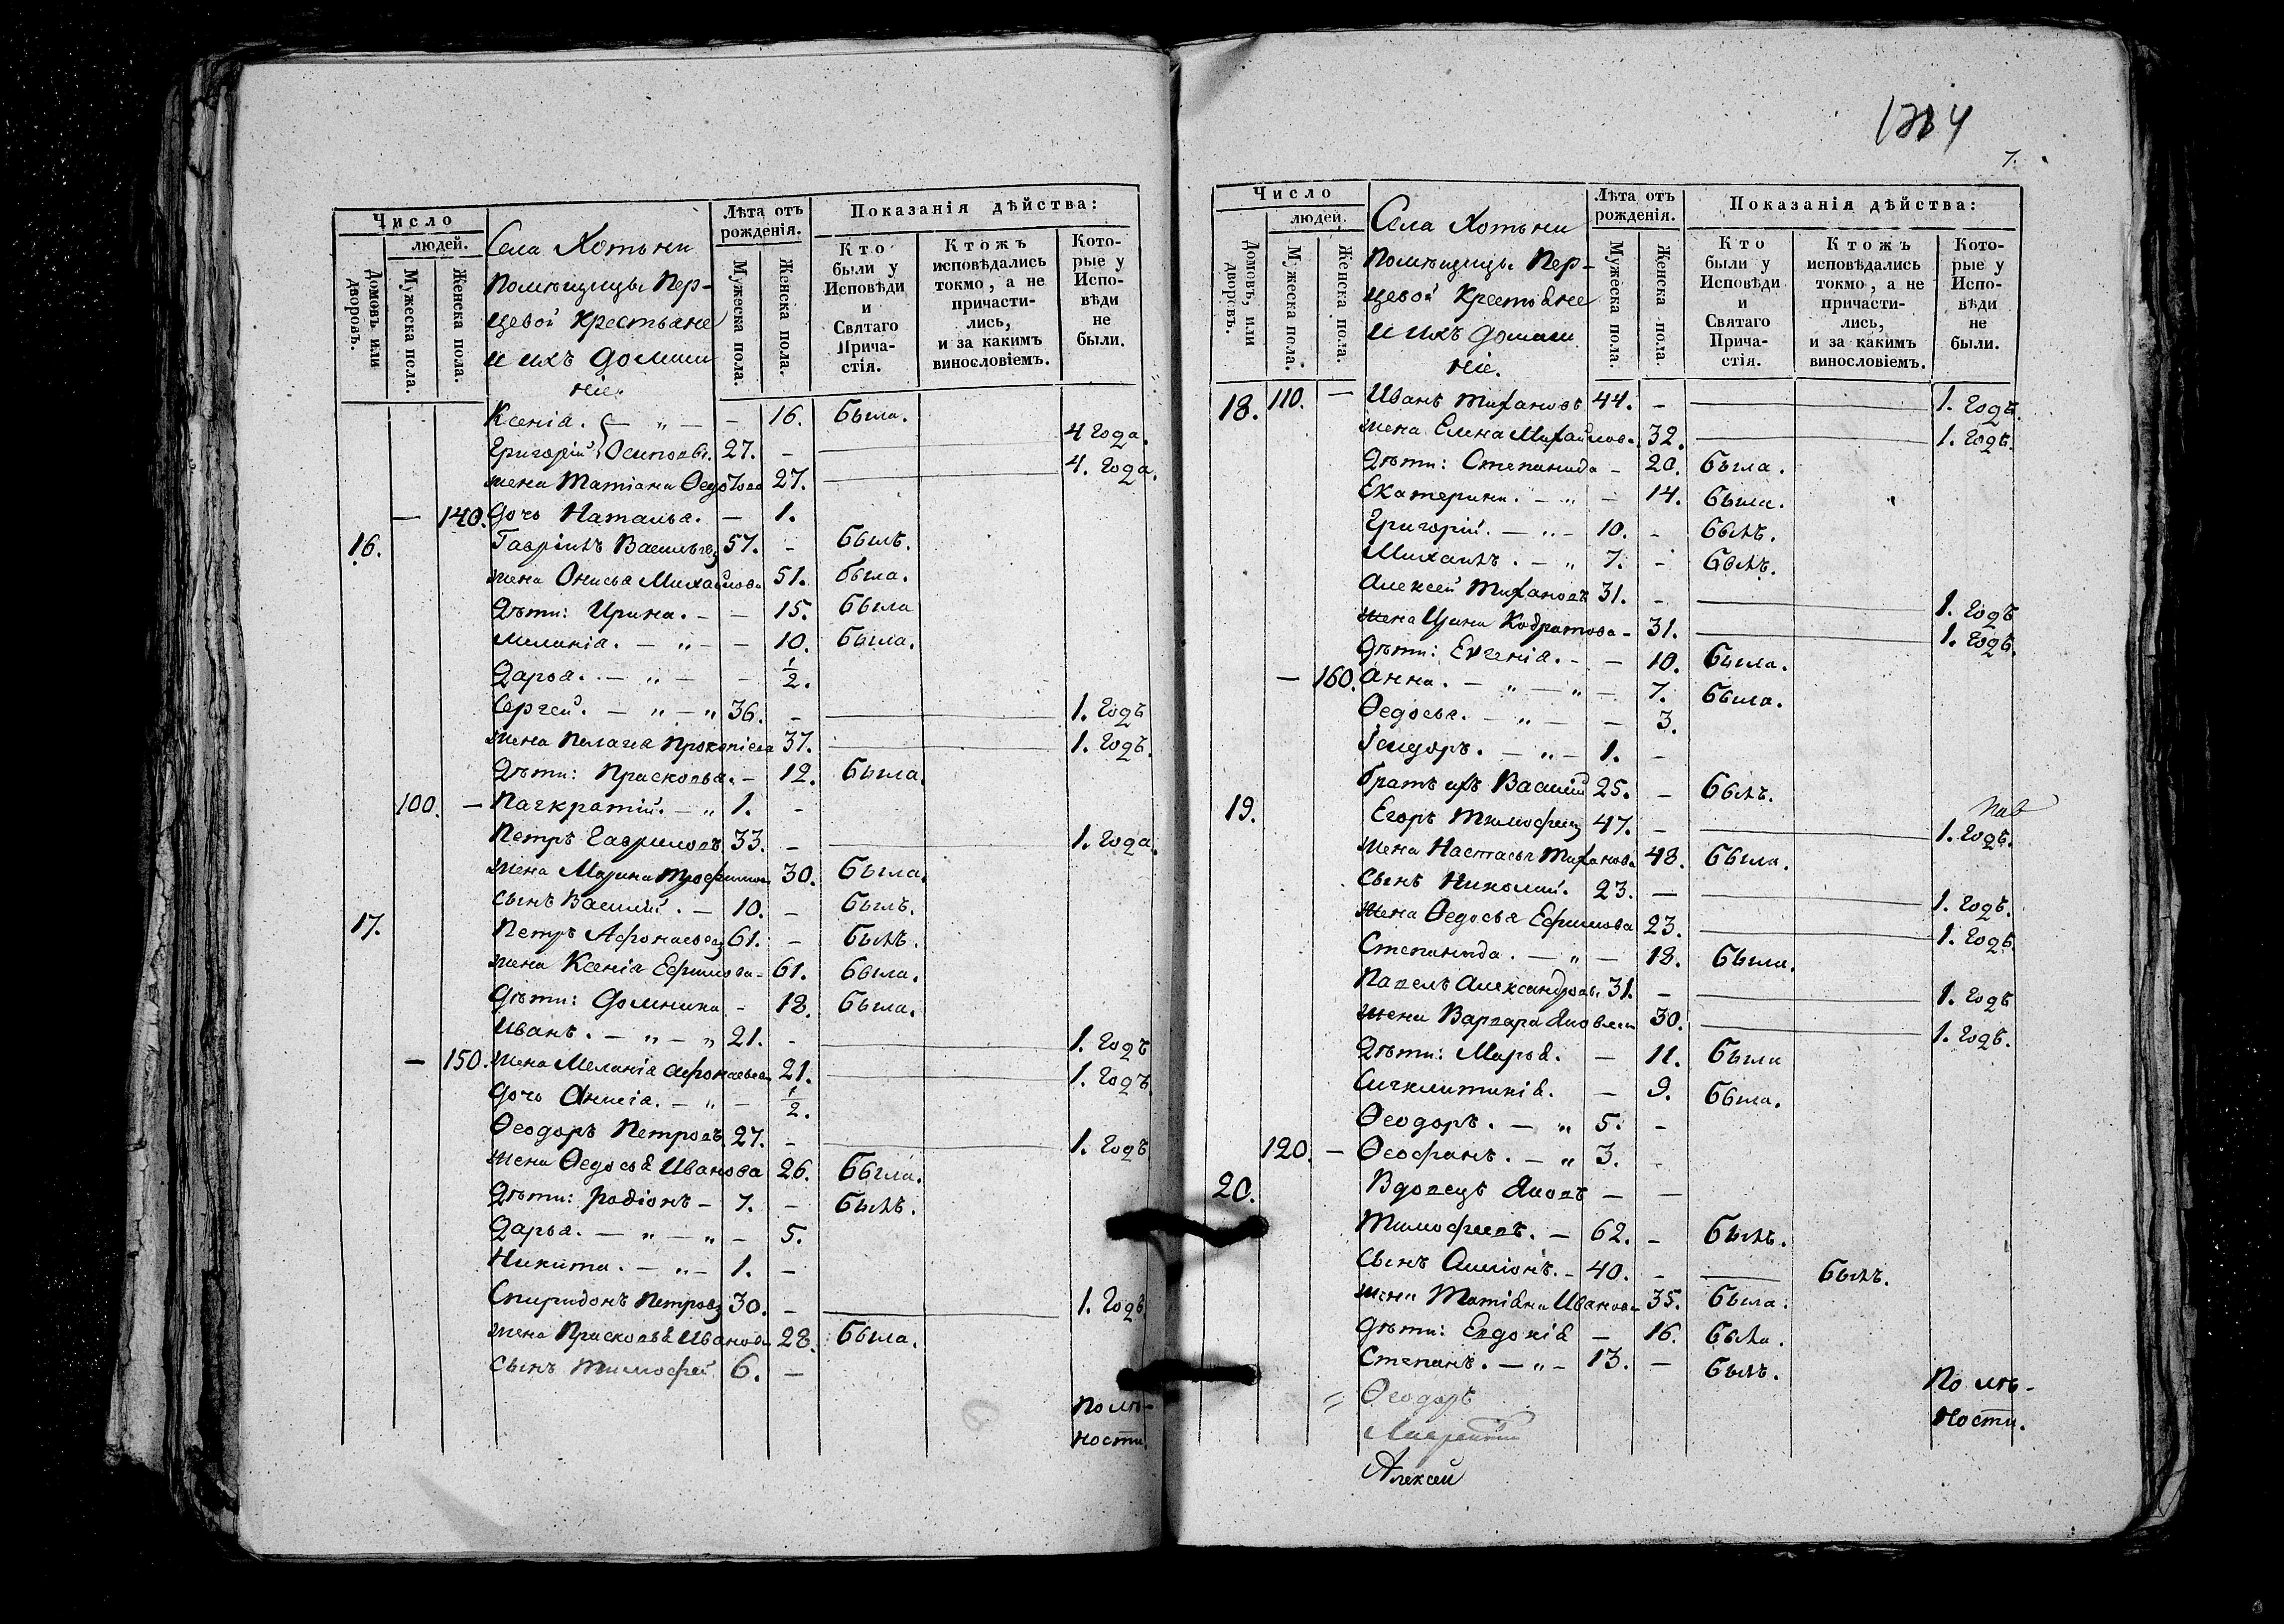 Число
людей.
Домовъ или дворовъ.
Мужеска пола.
Женска пола.
Села Хотыни
Помѣщицы Пер-
цевой Крестьане
и ихъ домаш
ніе.
Лѣта отъ рожденія.
Мужеска пола.
Женска пола.
Показанія дѣйства:
Кто были у Исповѣди и Святаго Прича- стія.
Ктожъ исповѣдались токмо, а не причасти- лись, и за какимъ винословіемъ.
Кото- рые у Испо- вѣди не были.
Ксенія. — „ — — 16. была.
Григорій Осиповъ. 27. - 4 года.
жена Татіана Ѳедотова 27. 4. года.
— 140. дочь Наталья. — 1.
16. Гавріилъ Васильевъ 57. - былъ.
жена Онисья Михайлова 51. была.
Дѣти: Ирина. - — 15. была
Меланія. — „ — — 10. была.
Дарья. — „ — — 1/2.
Сергей. — „ — „ 36. - 1. годъ
жена Пелагея Прокопіева 37. 1. годъ.
Дѣти: Прасковья. — 12. была.
100. — Панкратій. — „ 1. -
Петръ Гавриловъ 33. - 1. года.
жена Марина Трофимова 30. была.
сынъ Василій. — 10. - былъ.
17. Петръ Афонасьевъ 61. - былъ.
жена Ксенія Ефимова - 61. была.
Дѣти: Домника - 18. была.
Иванъ. — „ — „ 21. - 1. годъ
— 150. жена Меланія Афонасьева 21. 1. годъ.
дочь Анисія. — „ — 1/2.
Ѳеодоръ Петровъ 27. - 1. годъ
жена Ѳедосья Иванова 26. была.
Дѣти: Родіонъ — 7. - былъ.
Дарья. — „ — „ — 5.
Никита. — „ — 1. -
Спиридонъ Петровъ 30. - 1. годъ
жена Прасковья Иванова 28. была.
сынъ Тимофей 6. —
По лѣ-
ности.
7.
Число
людей.
Домовъ, или дворовъ.
Мужеска пола.
Женска пола.
Села Хотыни
Помѣщицы Пер-
цевой Крестьяне
и ихъ домаш
ніе.
Лѣта отъ рожденія.
Мужеска пола.
Женска пола
Показанія дѣйства:
Кто были у Исповѣди и Святаго Прича- стія.
Ктожъ исповѣдались токмо, а не причасти- лись, и за какимъ винословіемъ.
Кото- рые у Испо- вѣди не были.
18. 110. — Иванъ Тифановъ 44. - 1. годъ.
жена Елена Михайлова. 32. 1. годъ.
Дѣти: Степанида — 20. была.
Екатерина. — „ — 14. была.
Григорій. — „ — 10. - былъ.
Михаилъ. — „ 7. - былъ.
Алексей Тифановъ 31. - 1. годъ
жена Ирина Кодратова - 31. 1. годъ.
Дѣти: Евгенія. - — 10. была.
— 160. Анна. — „ — „ — 7. была.
Ѳедосья. — „ — — 3.
Ісидоръ. — „ — 1. -
братъ ихъ Василій 25. - былъ.
19. Егоръ Тимофеевъ 47. - 1. годъ.
жена Настасья Тифанова 48. была.
сынъ Николай. 23. — 1. годъ.
жена Ѳедосья Ефимова 23. 1. годъ.
Степанида. — „ — 18. была.
Павелъ Александровъ. 31. - 1. годъ
жена Варвара Яковлева 30. 1. годъ.
Дѣти: Марья. — 11. была
Сигклитикія. — 9. была.
Ѳеодоръ. — „ 5. -
120. — Ѳеофанъ. — „ 3. -
20. Вдовецъ Яковъ — —
Тимофеевъ. — 62. - былъ.
сынъ Симіонъ. - 40. - былъ.
жена Татіяна Иванова 35. была.
Дѣти: Евдокія — 16. была.
Степанъ. — „ — 13. — былъ.
Ѳеодоръ
Алексей
По лѣ-
ности.